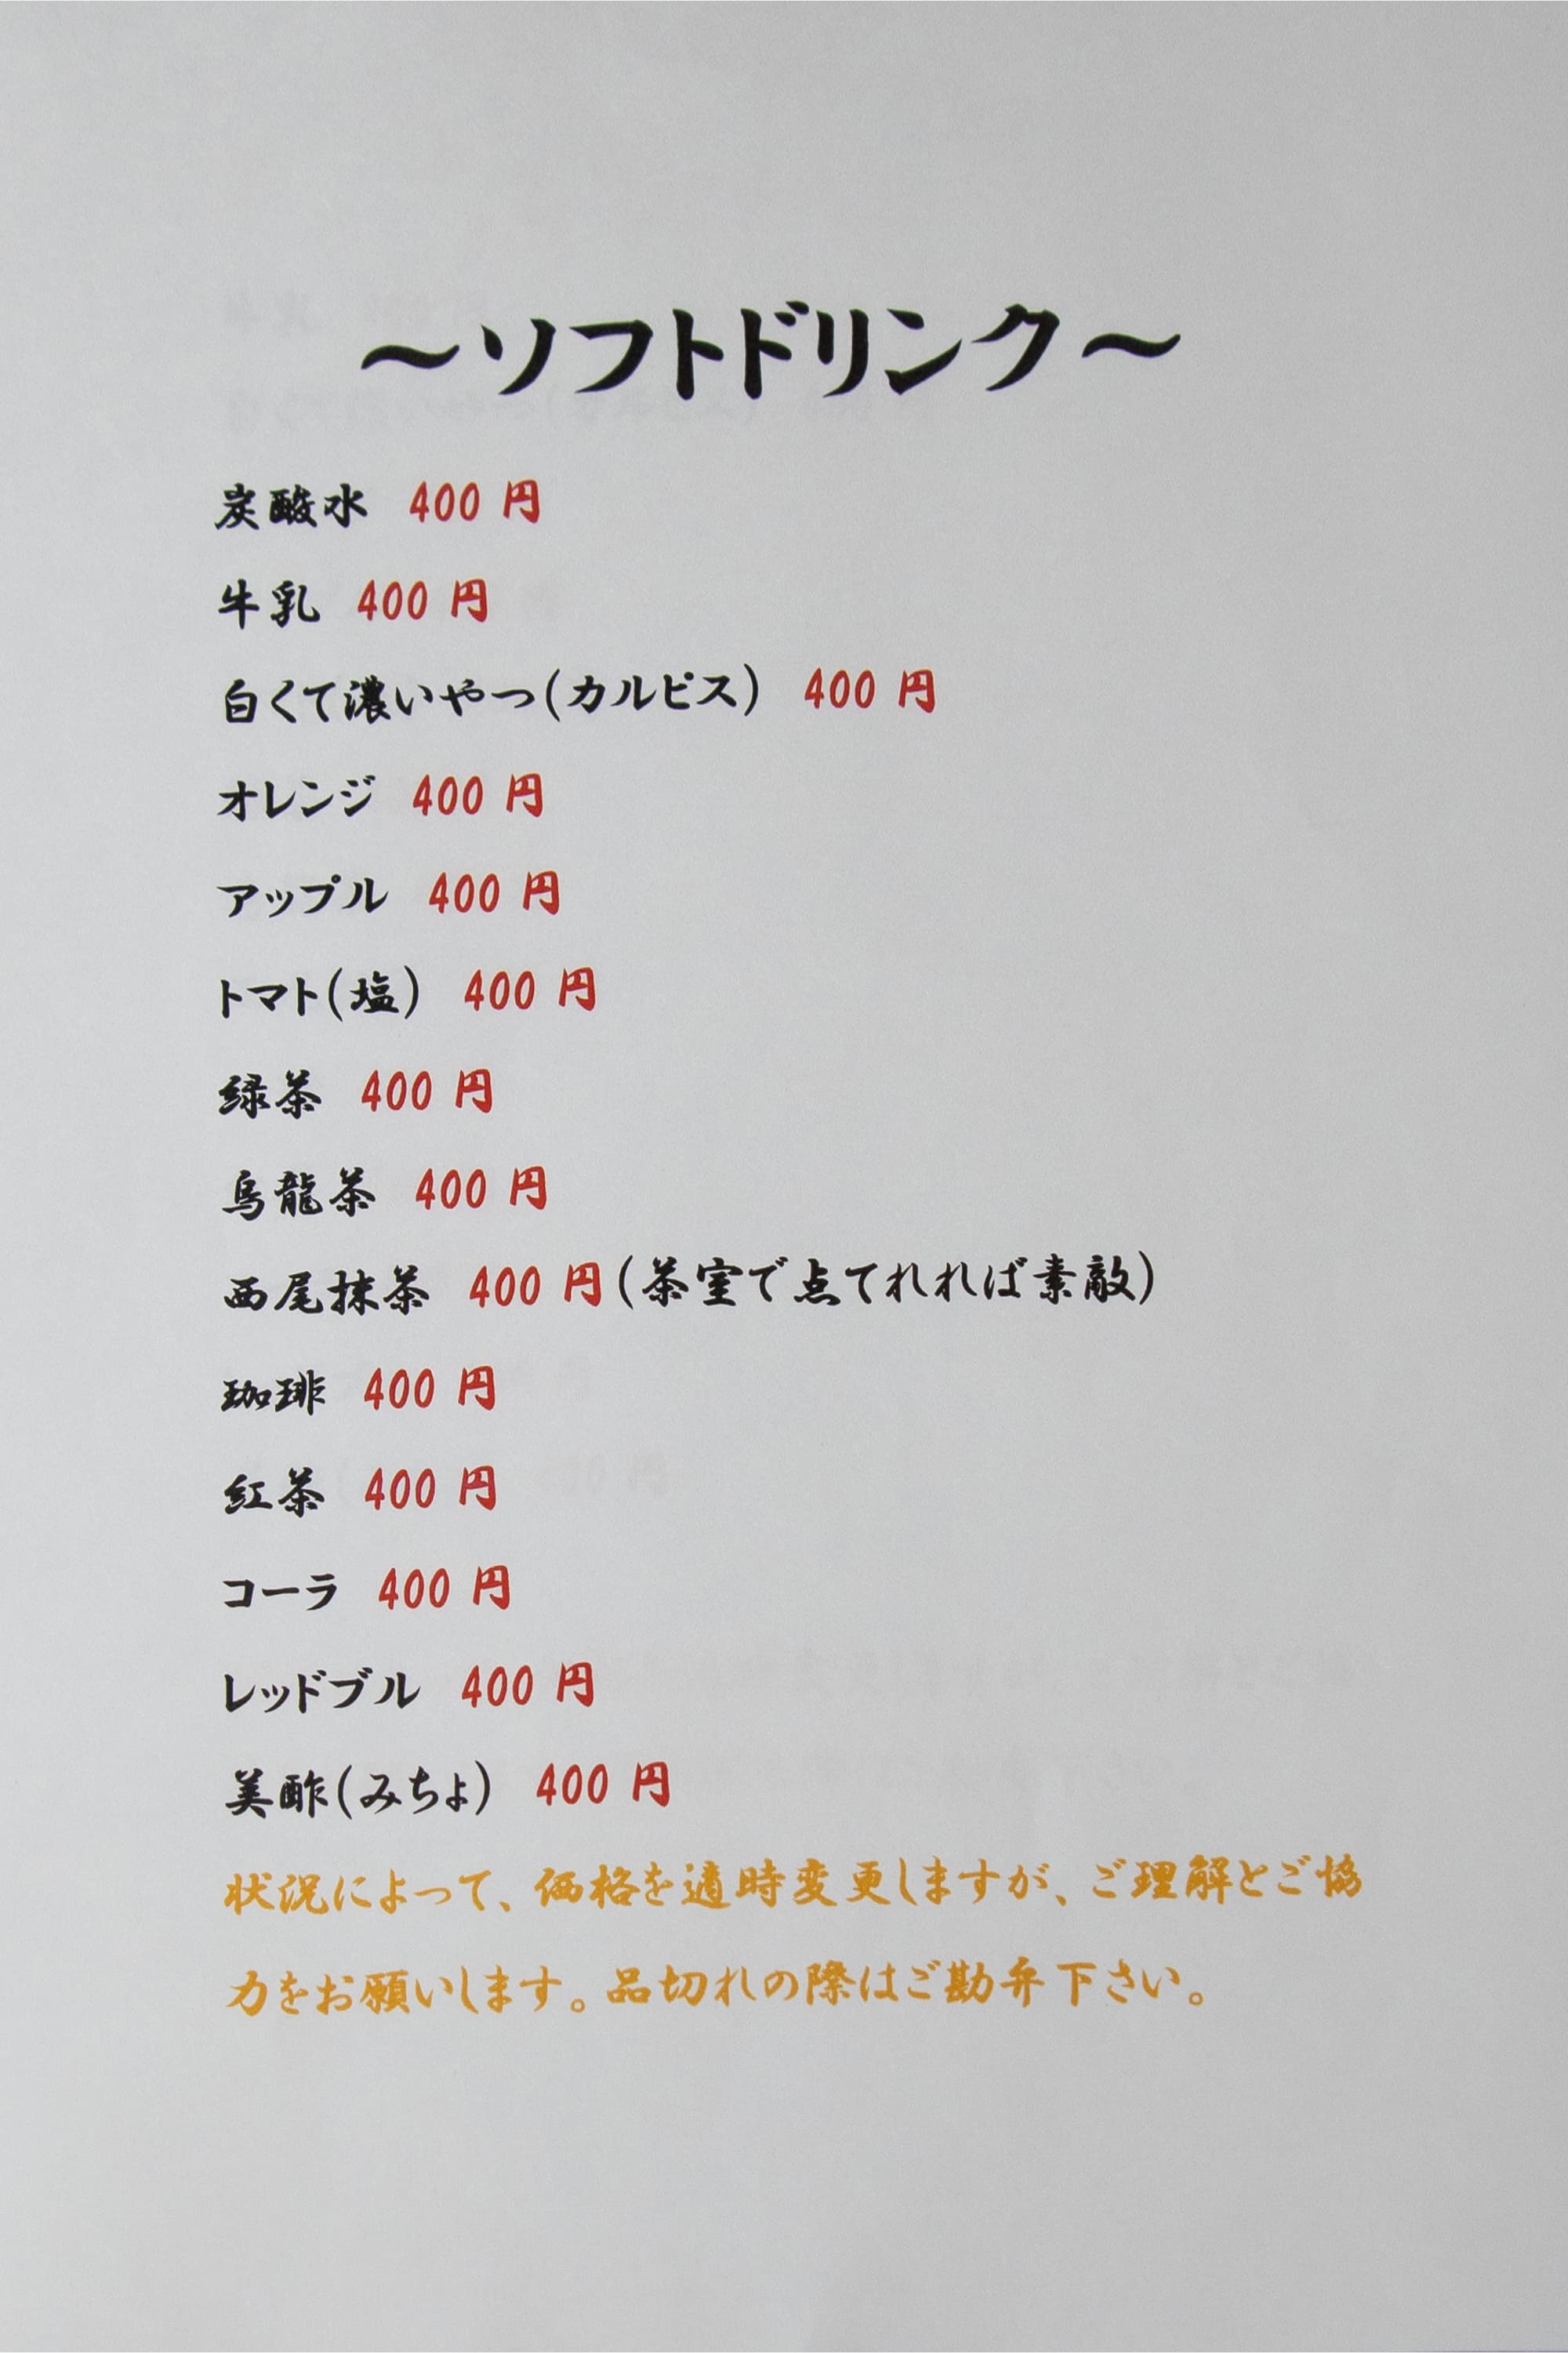 ～ソフトドリンク～
炭酸水 400 円
牛乳 400 円
白くて濃いやつ(カルピス) 400 円
オレンジ 400 円
アップル 400 円
トマト(塩) 400 円
緑茶 400 円
烏龍茶 400 円
西尾抹茶 400 円(茶室で点てれれば素敵)
珈琲 400 円
紅茶 400 円
コーラ 400 円
レッドブル 400 円
美酢(みちょ) 400 円
状況によって、価格を適時変更しますが、ご理解とご協
力をお願いします。品切れの際はご勘弁下さい。